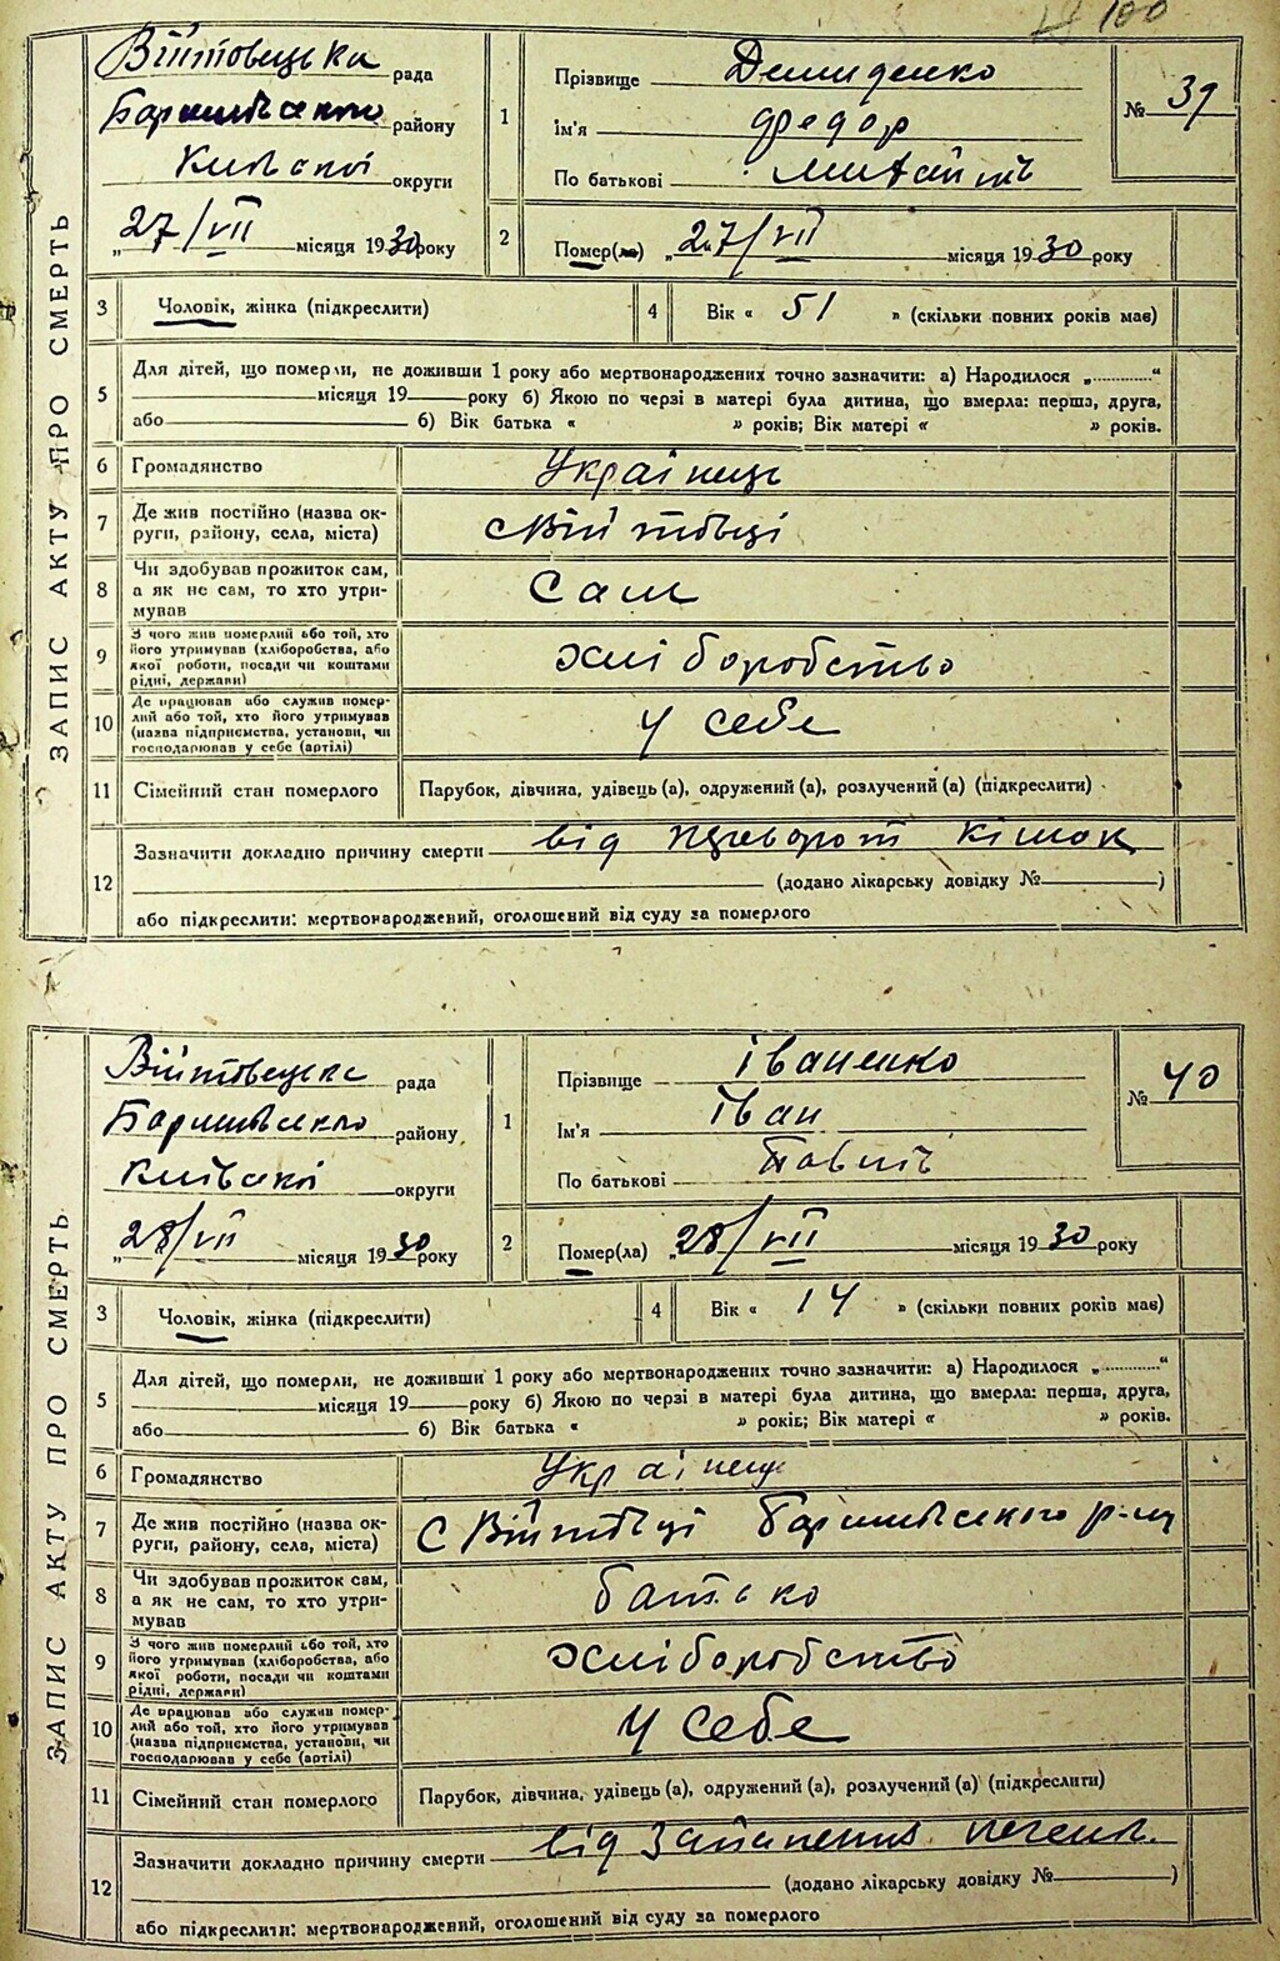 100
ЗАПИС АКТУ ПРО СМЕРТЬ
Війтовецька рада
Баришівського району
Київської округи
„27/VII місяця 1930 року
1
Прізвище Демиденко
Ім'я Федор
По батькові Михайлів
№ 39
2
Помер(ла) „27/VII місяця 1930 року
3 Чоловік, жінка (підкреслити)
4 Вік « 51 » (скільки повних років має)
5 Для дітей, що померли, не доживши 1 року або мертвонароджених точно зазначити: а) Народилося „ “
місяця 19 року б) Якою по черзі в матері була дитина, що вмерла: перша, друга,
або б) Вік батька « » років; Вік матері « » років.
6 Громадянство Українць
7 Де жив постійно (назва ок-
руги, району, села, міста) с Війтовці
8 Чи здобував прожиток сам,
а як не сам, то хто утри-
мував Сам
9 З чого жив померлий або той, хто
його утримував (хліборобства, або
якої роботи, посади чи коштами
рідні, держави) хліборобство
10 Де працював або служив помер-
лий або той, хто його утримував
(назва підприємства, установи, чи
господарював у себе (артілі) у себе
11 Сімейний стан померлого Парубок, дівчина, удівець (а), одружений (а), розлучений (а) (підкреслити)
12 Зазначити докладно причину смерти від кішок
(додано лікарську довідку № )
або підкреслити: мертвонароджений, оголошений від суду за померлого
ЗАПИС АКТУ ПРО СМЕРТЬ
Війтовецька рада
Баришівського району
Київської округи
„28/VII місяця 1930 року
1
Прізвище Іваненко
Ім'я Іван
По батькові Павлів
№ 40
2
Помер(ла) „28/VII місяця 1930 року
3 Чоловік, жінка (підкреслити)
4 Вік « 14 » (скільки повних років має)
5 Для дітей, що померли, не доживши 1 року або мертвонароджених точно зазначити: а) Народилося „ “
місяця 19 року б) Якою по черзі в матері була дитина, що вмерла: перша, друга,
або б) Вік батька « » років; Вік матері « » років.
6 Громадянство Українць
7 Де жив постійно (назва ок-
руги, району, села, міста) С Війтовці Баришівського р-ну
8 Чи здобував прожиток сам,
а як не сам, то хто утри-
мував батько
9 З чого жив померлий або той, хто
його утримував (хліборобства, або
якої роботи, посади чи коштами
рідні, держави) хліборобство
10 Де працював або служив помер-
лий або той, хто його утримував
(назва підприємства, установи, чи
господарював у себе (артілі) у себе
11 Сімейний стан померлого Парубок, дівчина, удівець (а), одружений (а), розлучений (а) (підкреслити)
12 Зазначити докладно причину смерти від запалення
(додано лікарську довідку № )
або підкреслити: мертвонароджений, оголошений від суду за померлого